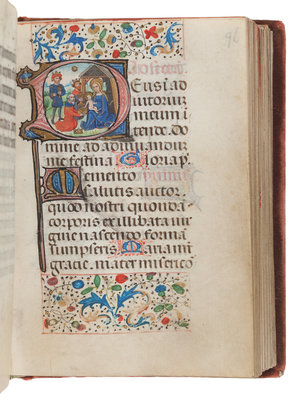 Deus i ad
iutoriuz
meum i
tende. Do
mine ad adiuuandum
me festina Gloria p.
Memento
salutis auctor.
quod nostri quonda
corporis ex illibata uir
gine nascendo forma
sumpseris Maria mr
gracie. mater miserico